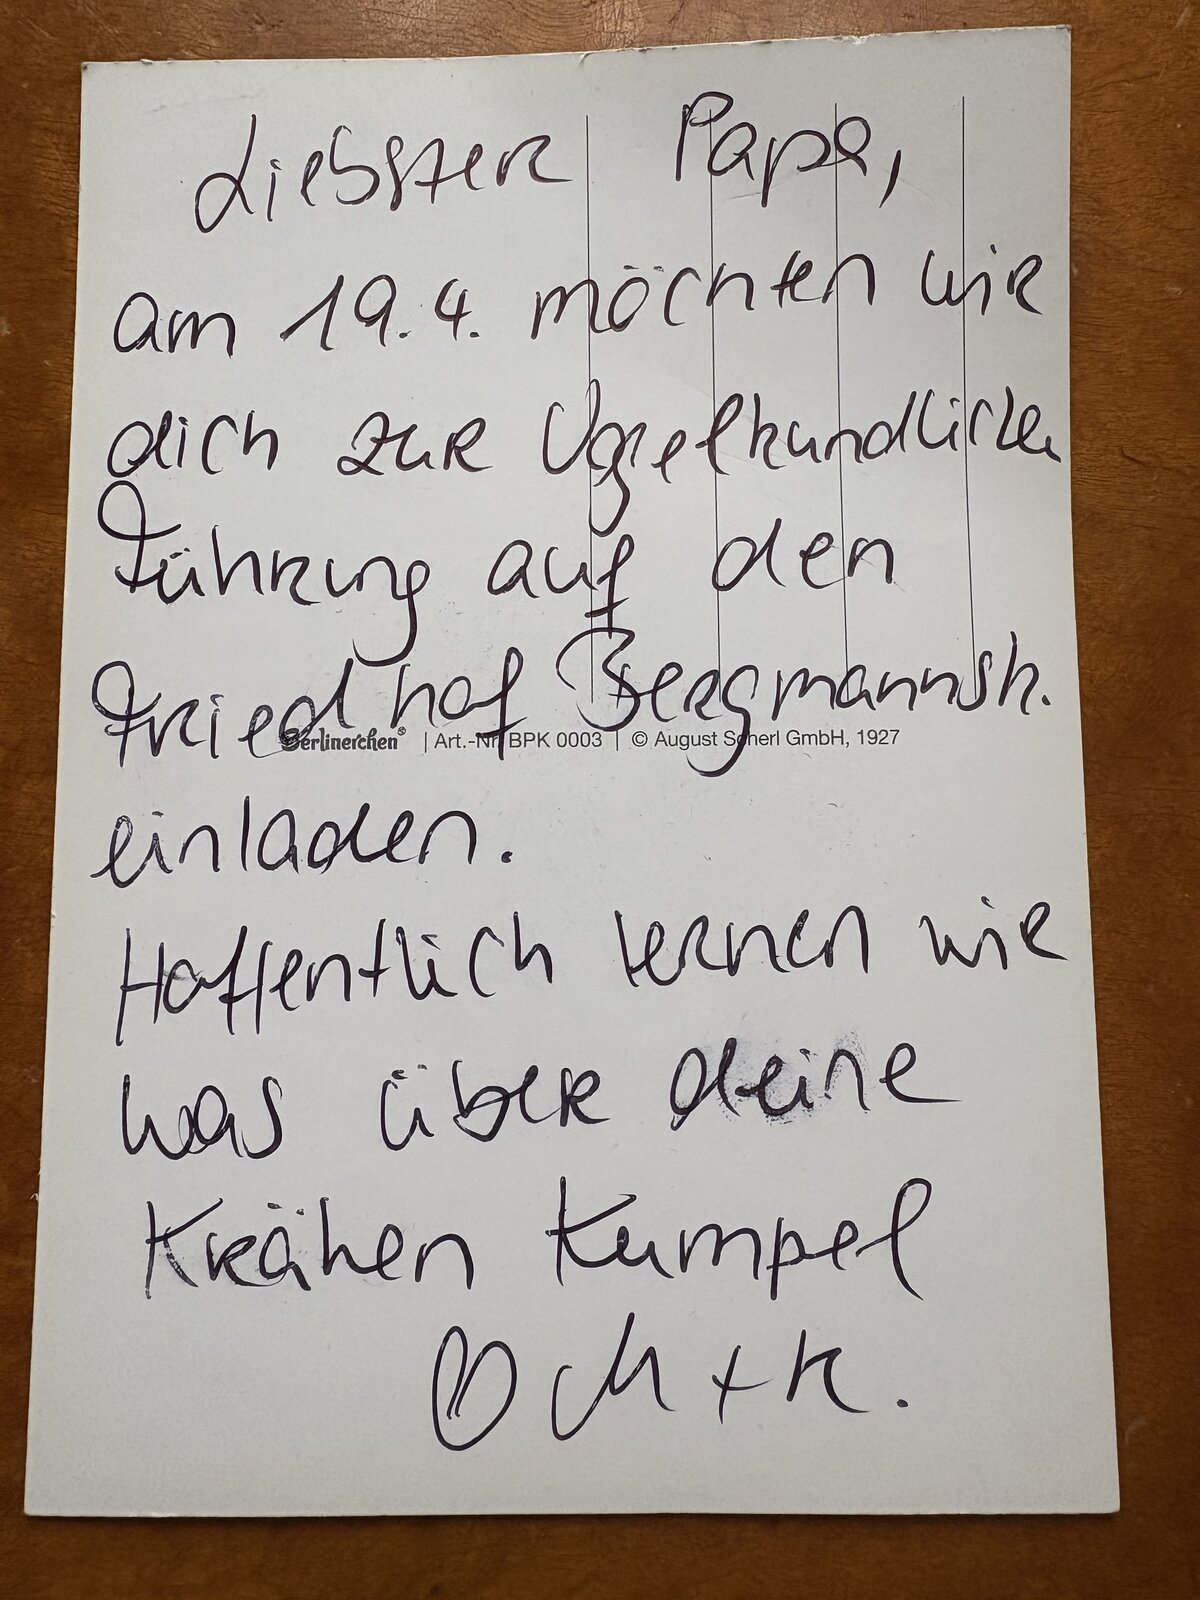 Liebster Papa,
am 19.4. möchten wir
dich zur Vogelkundlichen
Führung auf den
Friedhof Bergmannstr.
Berlinerchen® | Art.-Nr. BPK 0003 | © August Scherl GmbH, 1927
einladen.
Hoffentlich lernen wir
was über deine
Krähen Kumpel
♡ M + K.